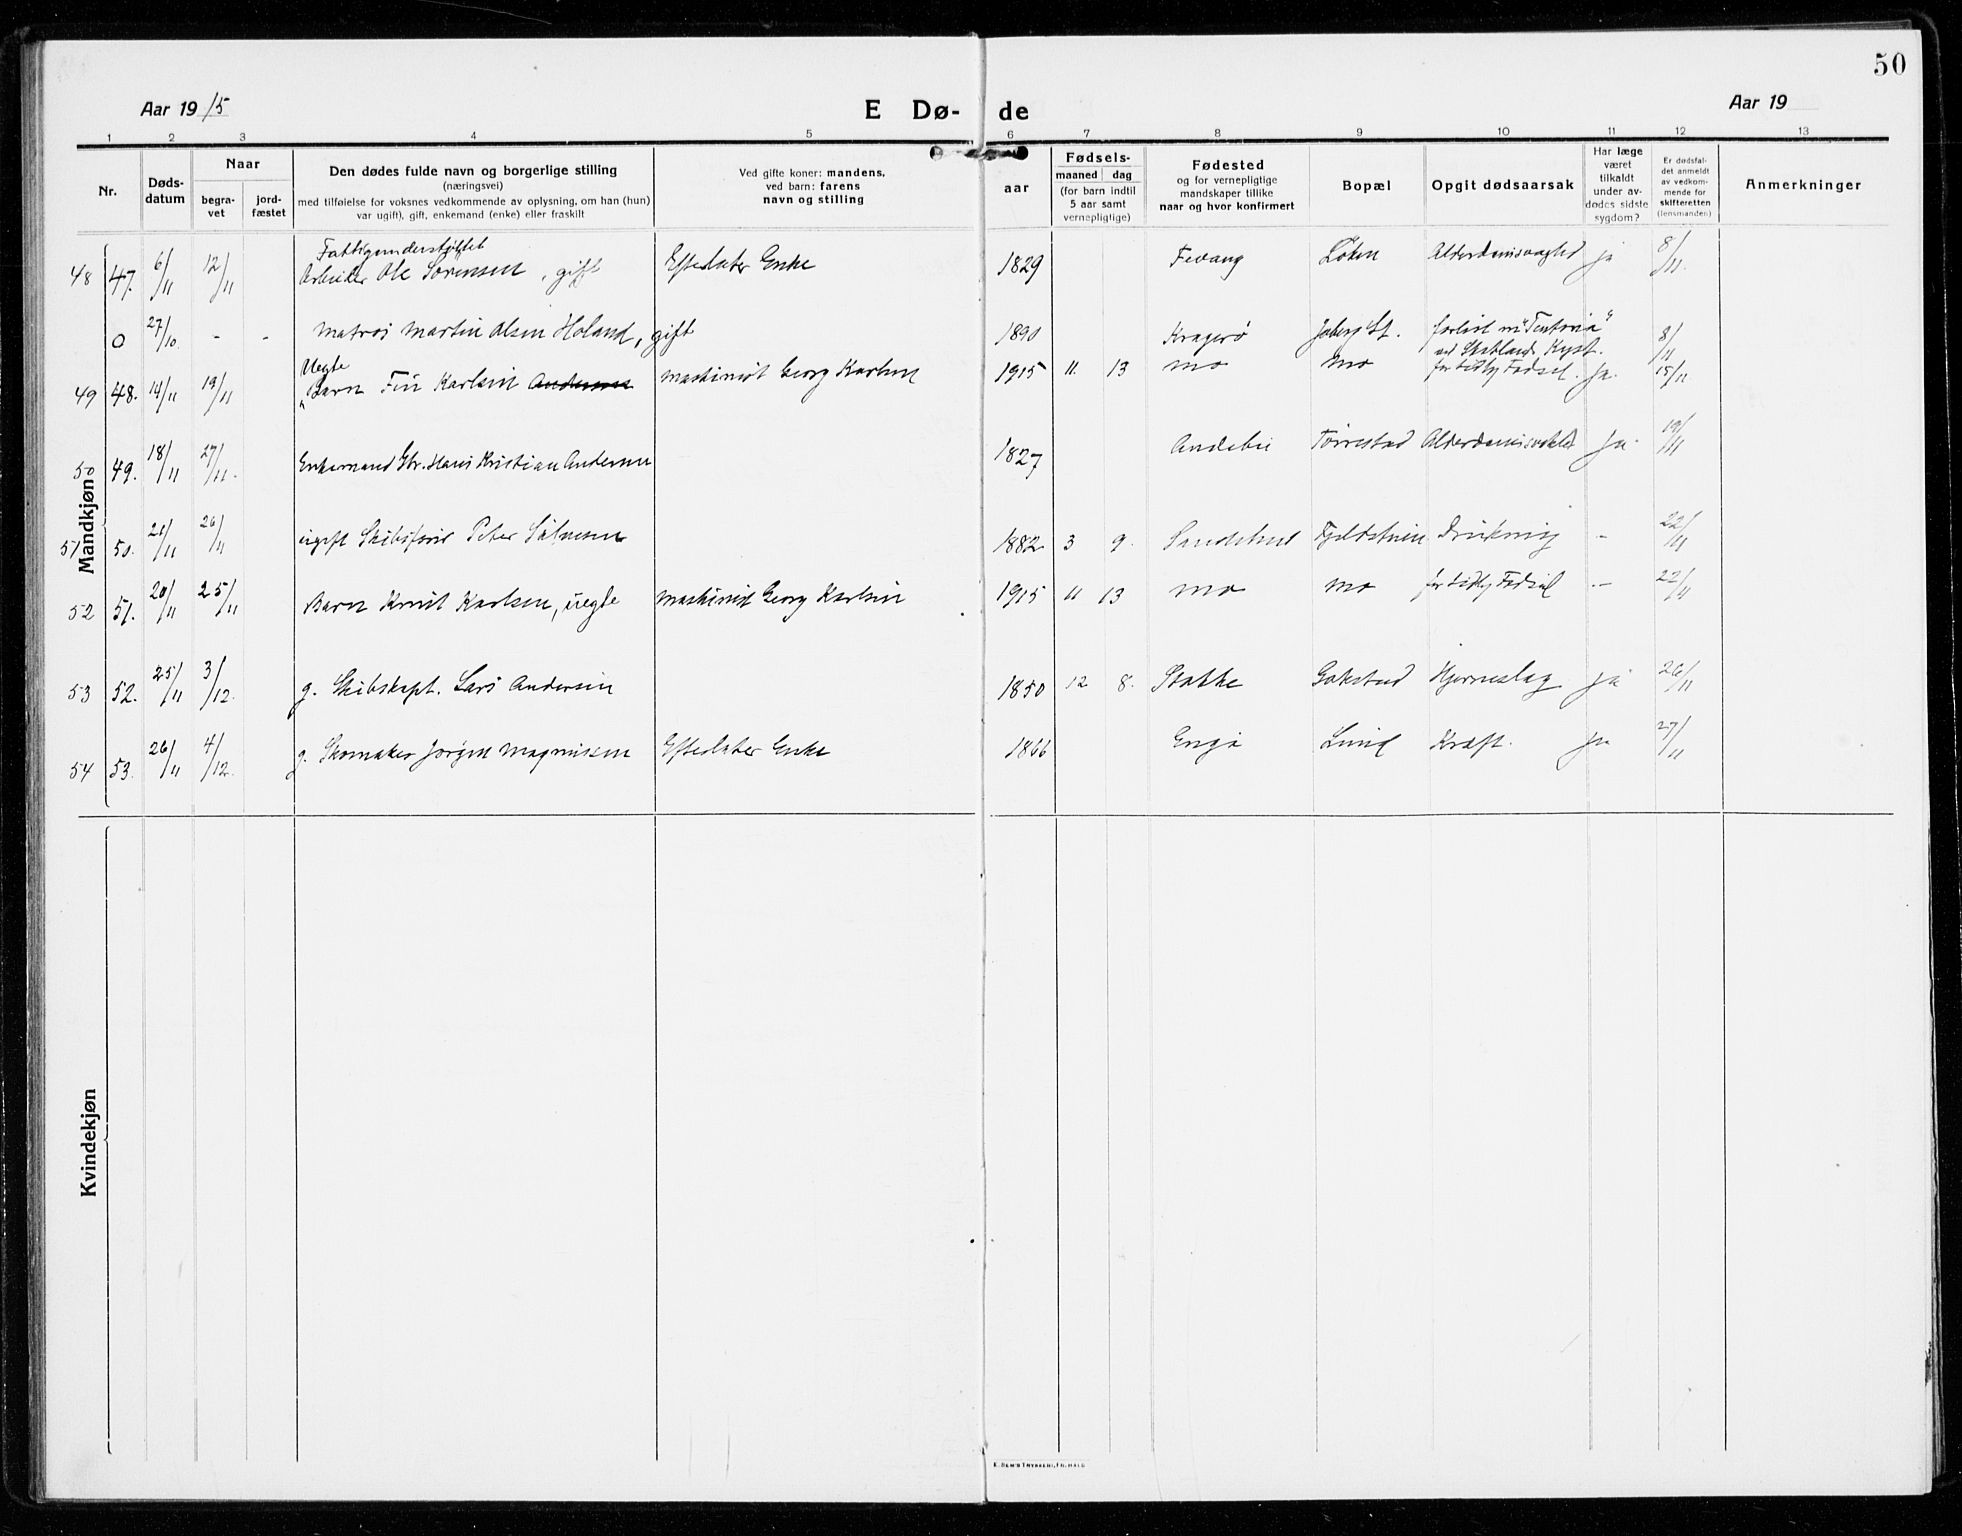 50
Aar 1915 E Dø- de Aar 19
1 2 3 4 5 6 7 8 9 10 11 12 13
Nr.
Døds-
datum
Naar
begra-
vet
jord-
fæstet
Den dødes fulde navn og borgerlige stilling
(næringsvei)
med tilføielse for voksnes vedkommende av oplysning, om han (hun)
var ugift), gift, enkemand (enke) eller fraskilt
Ved gifte koner: mandens,
ved barn: farens
navn og stilling
aar
Fødsels-
maaned dag
(for barn indtil
5 aar samt
vernepligtige)
Fødested
og for vernepligtige
mandskaper tillike
naar og hvor konfirmert
Bopæl
Opgit dødsaarsak
Har læge
været
tilkaldt
under av-
dødes sidste
sygdom?
Er dødsfal-
det anmeldt
av vedkom-
mende for
skifteretten
(lensmanden)
Anmerkninger
Mandkjøn
Fattigunderstøttet
48 47. 6/11 12/11 Arbeider Ole Sørensen, gift Efterlater Enke 1829 Fevang Løken Alderdomssvaghed ja 8/11.
0 27/10. - - Matros Martin Olsen Holand, gift 1890 Kragerø Joberg St. forlist m "
ved Kyst. 8/11
Uegte
49 48. 14/11 19/11 Barn Fin Karlsen Andersen maskinist Georg Karlsen 1915 11. 13 Mo Mo for tidlig Fødsel. Ja. 15/11
50 49. 18/11 27/11. Enkemand Gbr. Hans Kristian Andersen 1827 Andebu Tørrestad Alderdomssvakhed Ja. 19/11
51 50. 21/11 26/11 ugift Peter 1882 3 9. Sandeherred Drukning - 22/11
52 51. 20/11 25/11 Barn Knut Karlsen, uegte maskinist Georg Karlsen 1915 11 13 Mo Mo for tidlig Fødsel - 22/11
53 52. 25/11 3/12. g. Skibskapt. Lars Andersen 1850 12 8. Stokke Gokstad Hjerneslag ja 26/11
54 53. 26/11 4/12. g. Skomaker Jørgen Magnussen Efterlater Enke 1866 Engø Lund Kræft. ja 27/11
Kvindekjøn
E. SEM'S TRYKKERI, FR.HALD